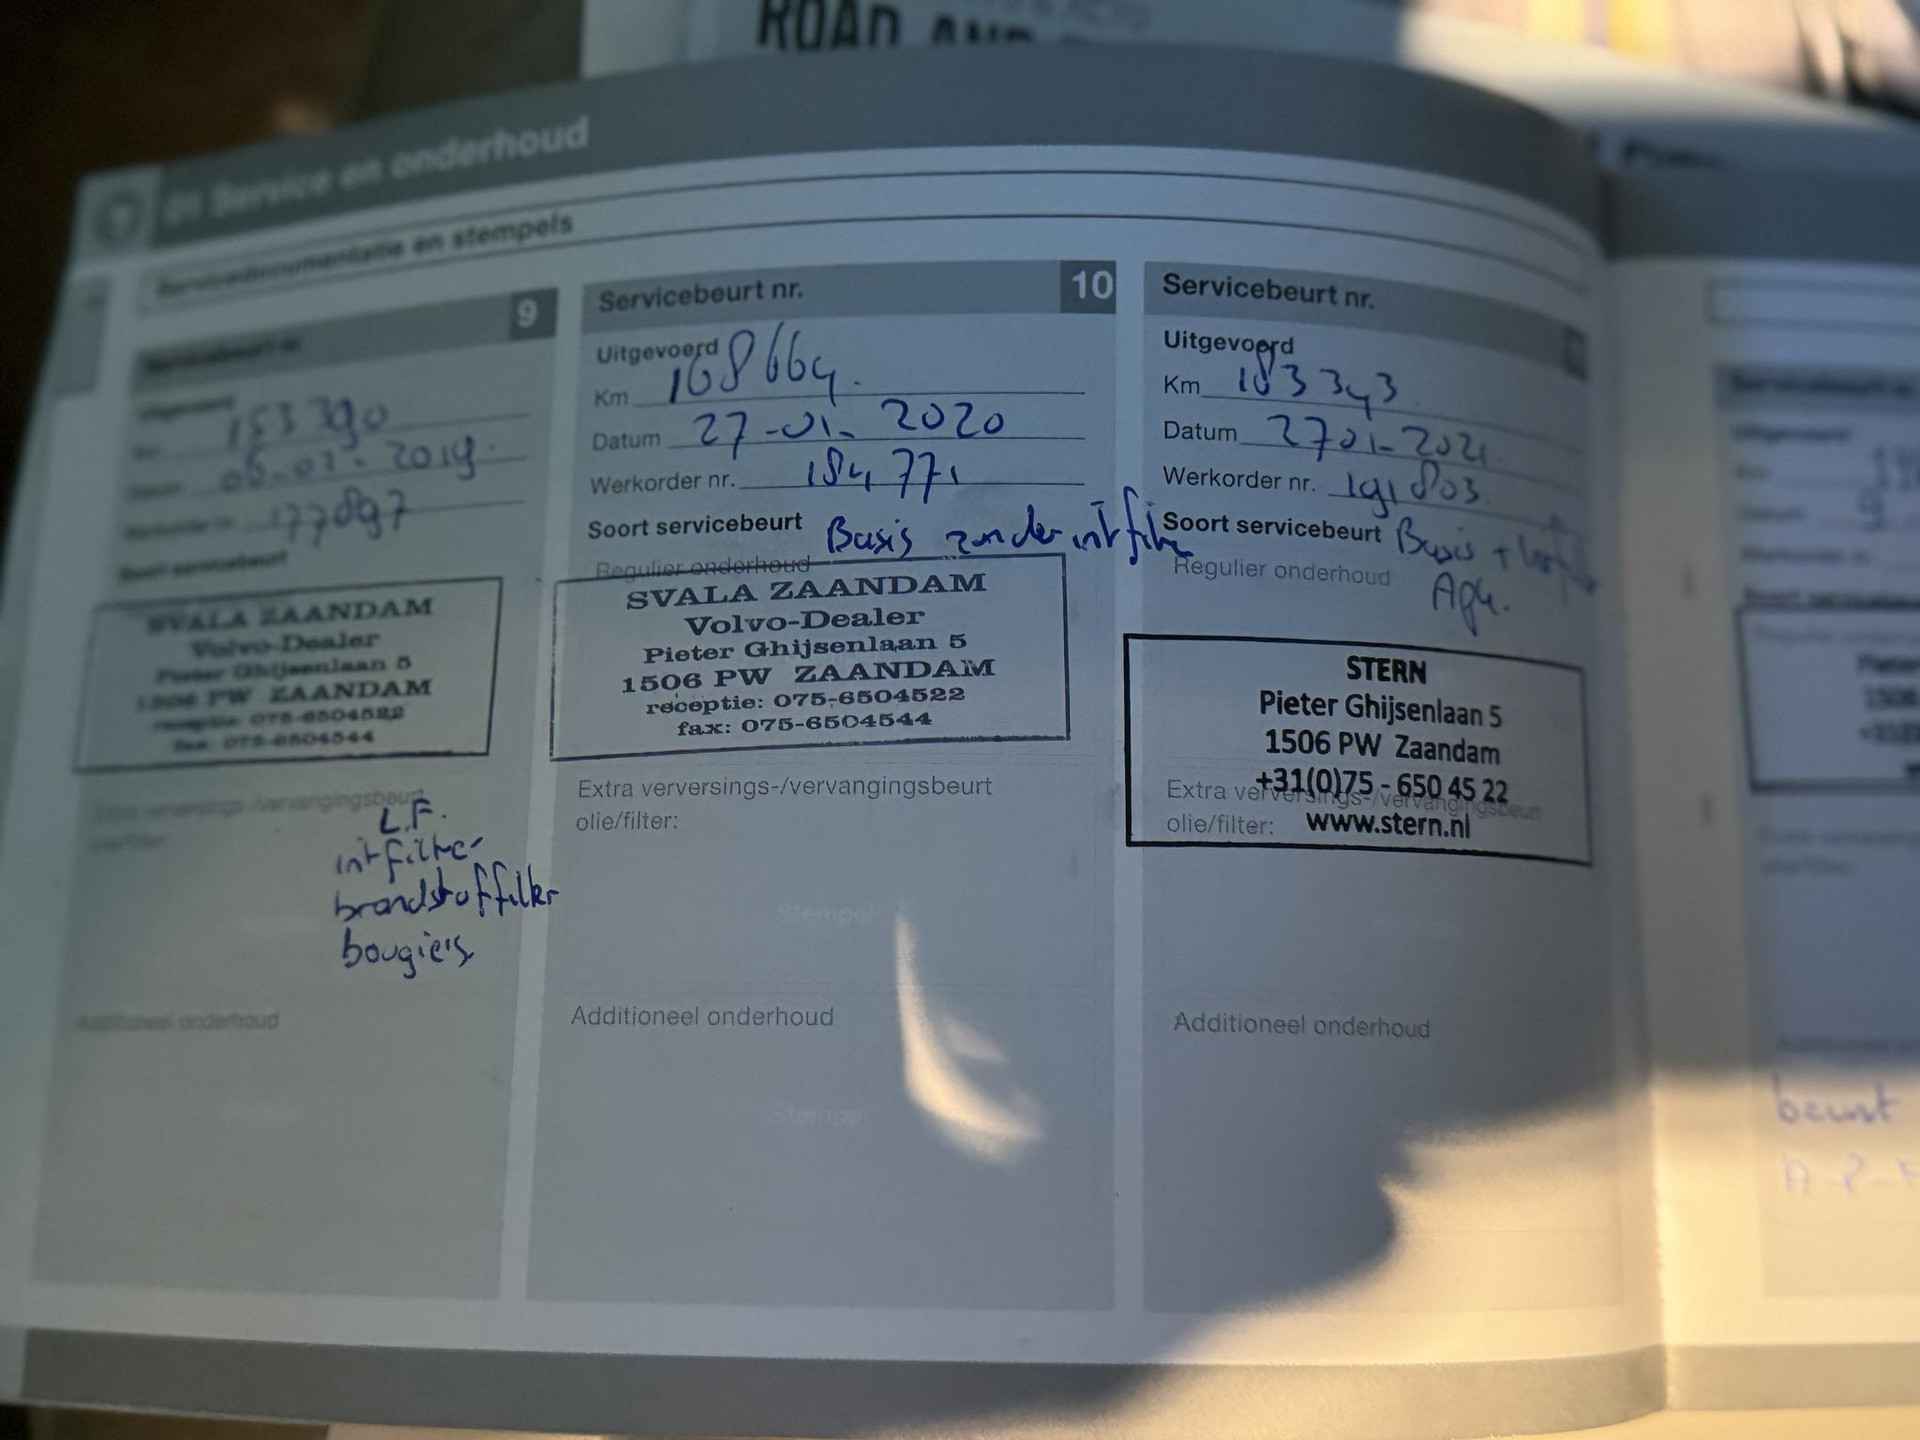 ROAD AND
01 Service en onderhoud
Servicedocumentatie en stempels
9
Servicebeurt nr.
Uitgevoerd
Km 153390
Datum 2019.
Werkorder nr. 177897
Soort servicebeurt
SVALA ZAANDAM
Volvo-Dealer
Pieter Ghijsenlaan 5
1506 PW ZAANDAM
receptie: 075-6504522
fax: 075-6504544
Extra verversings-/vervangingsbeurt
olie/filter:
L.F.
intfilter
brandstoffilter
bougie's
Additioneel onderhoud
Servicebeurt nr. 10
Uitgevoerd
Km 168664.
Datum 27-01-2020
Werkorder nr. 184771
Soort servicebeurt Basis zonder intfilter
Regulier onderhoud
SVALA ZAANDAM
Volvo-Dealer
Pieter Ghijsenlaan 5
1506 PW ZAANDAM
receptie: 075-6504522
fax: 075-6504544
Extra verversings-/vervangingsbeurt
olie/filter:
Stempel
Additioneel onderhoud
Stempel
Servicebeurt nr.
Uitgevoerd
Km 183343
Datum 2701-2021.
Werkorder nr. 191803.
Soort servicebeurt Basis +
Regulier onderhoud
Apk.
STERN
Pieter Ghijsenlaan 5
1506 PW Zaandam
+31(0)75 - 650 45 22
www.stern.nl
Extra verversings-/vervangingsbeurt
olie/filter:
Additioneel onderhoud
beurt